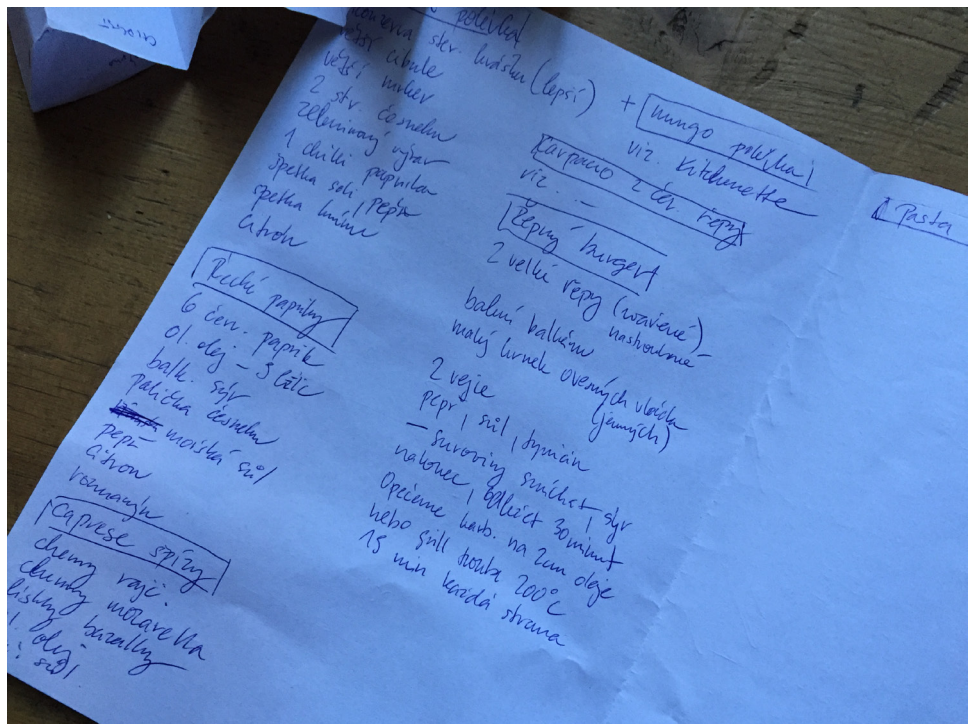 polévka
konzerva ster. hrášku (lepší)
větší cibule
větší mrkev
2 str. česneku
zeleninový vývar
1 chilli paprika
špetka soli, pepře
špetka kmínu
citron
Řecké papriky
6 červ. paprik
ol. olej – 3 lžíc
balk. sýr
palička česneku
mořská sůl
pepř
citron
rozmarýn
Caprese špízy
cherry rajč.
cherry mozarella
lístky bazalky
ol. olej
sůl
+ mungo polévka
viz. Kitchenette
Carpacio z čer. řepy
viz. –
Řepný burger
2 velké řepy (uvařené)
nastrouhané
balení balkánu
malý hrnek ovesných vloček
(jemných)
2 vejce
pepř, sůl, tymián
– suroviny smíchat, sýr
nakonec, odležet 30 minut
Opečeme karb. na 2cm oleje
nebo gril trouba 200°C
15 min každá strana
Pasta